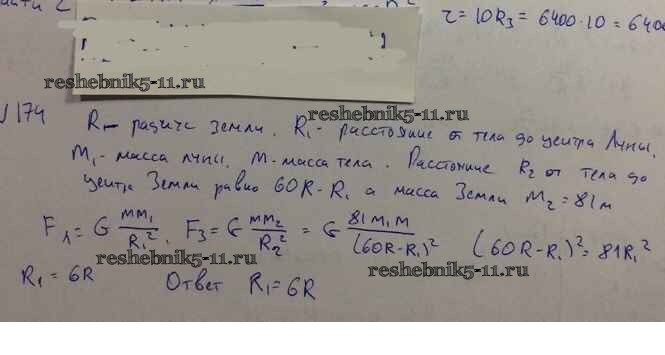 τ = 10R₃ = 6400·10 = 6400
reshebnik5-11.ru
reshebnik5-11.ru
√174 R – радиус Земли. R₁ – расстояние от тела до центра Луны,
M₁ – масса луны. M – масса тела. Расстояние R₂ от тела до
центра Земли равно 60R – R₁ а масса Земли M₂ = 81м
F₁ = G mm₁/R₁². F₃ = G mm₂/R₂² = G 81M₁M/(60R–R₁)² (60R–R₁)² = 81R₁²
reshebnik5-11.ru
reshebnik5-11.ru
R₁ = 6R Ответ R₁ = 6R